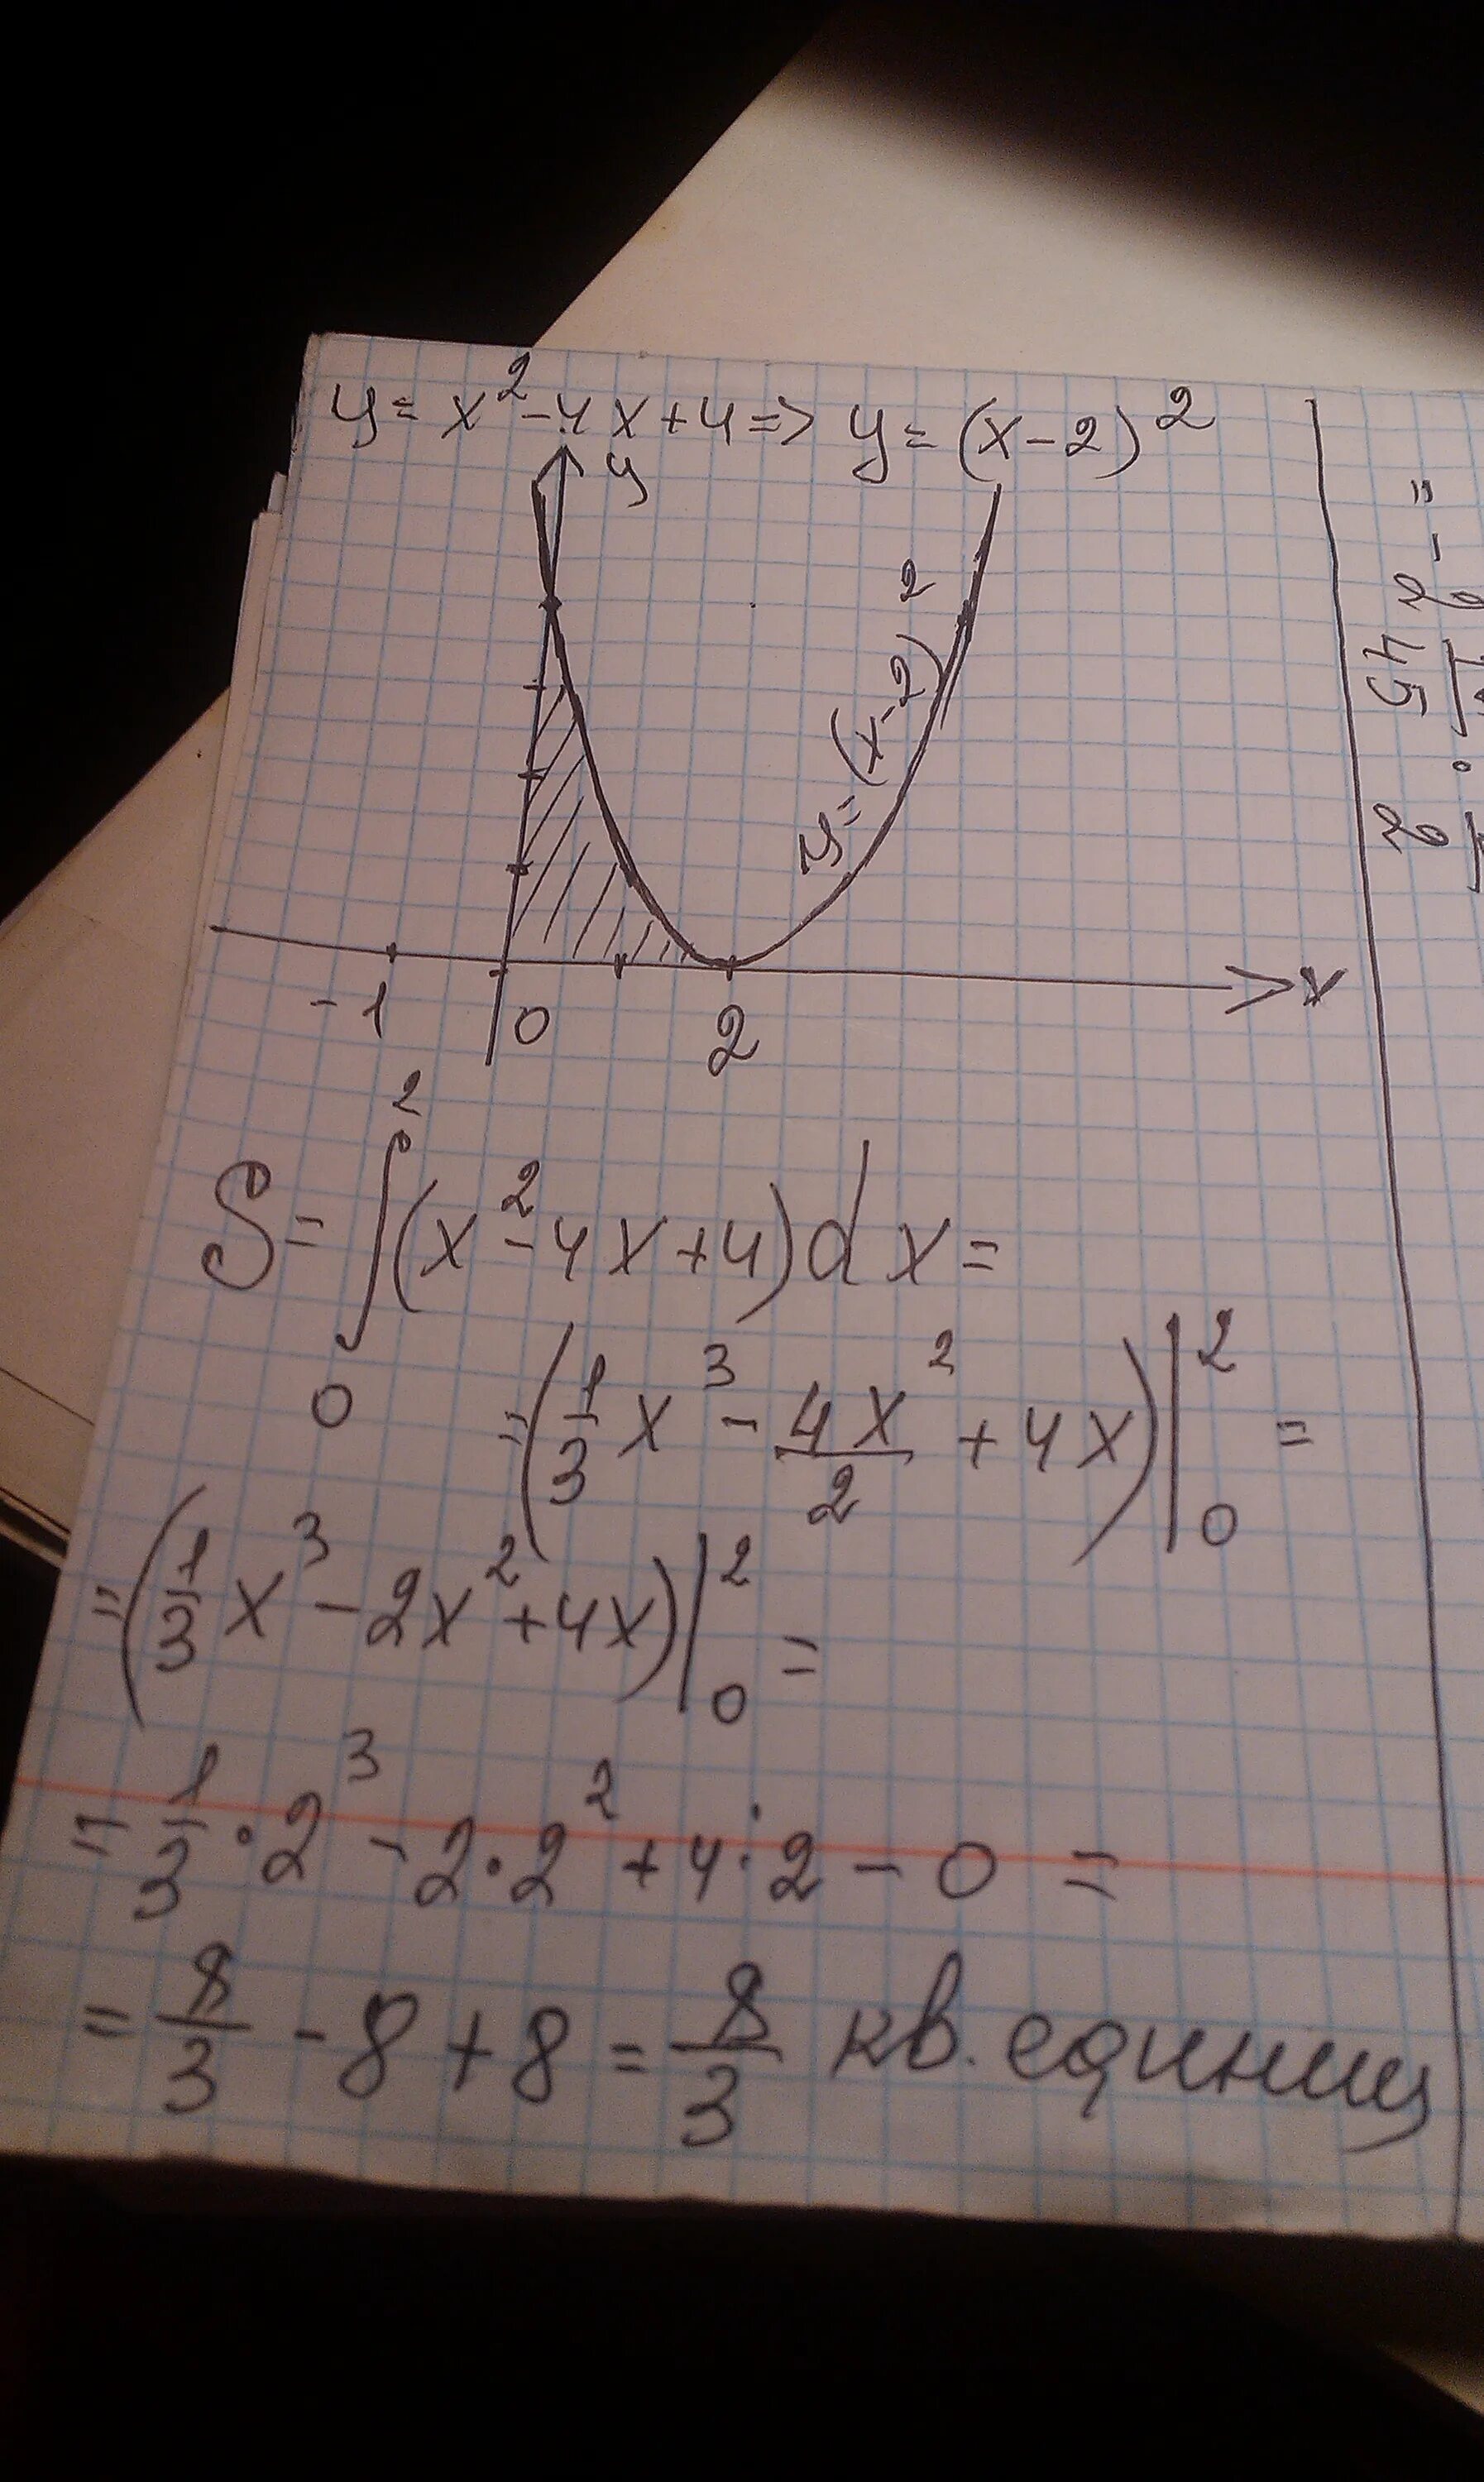 y = x² - 4x + 4 => y = (x - 2)²
y
y = (x - 2)²
x
-1 0 2
S = ∫₀² (x² - 4x + 4) dx =
= (1/3 x³ - 4x²/2 + 4x) |₀² =
= (1/3 x³ - 2x² + 4x) |₀² =
= 1/3 · 2³ - 2 · 2² + 4 · 2 - 0 =
= 8/3 - 8 + 8 = 8/3 кв. единиц
= - 2 45 2